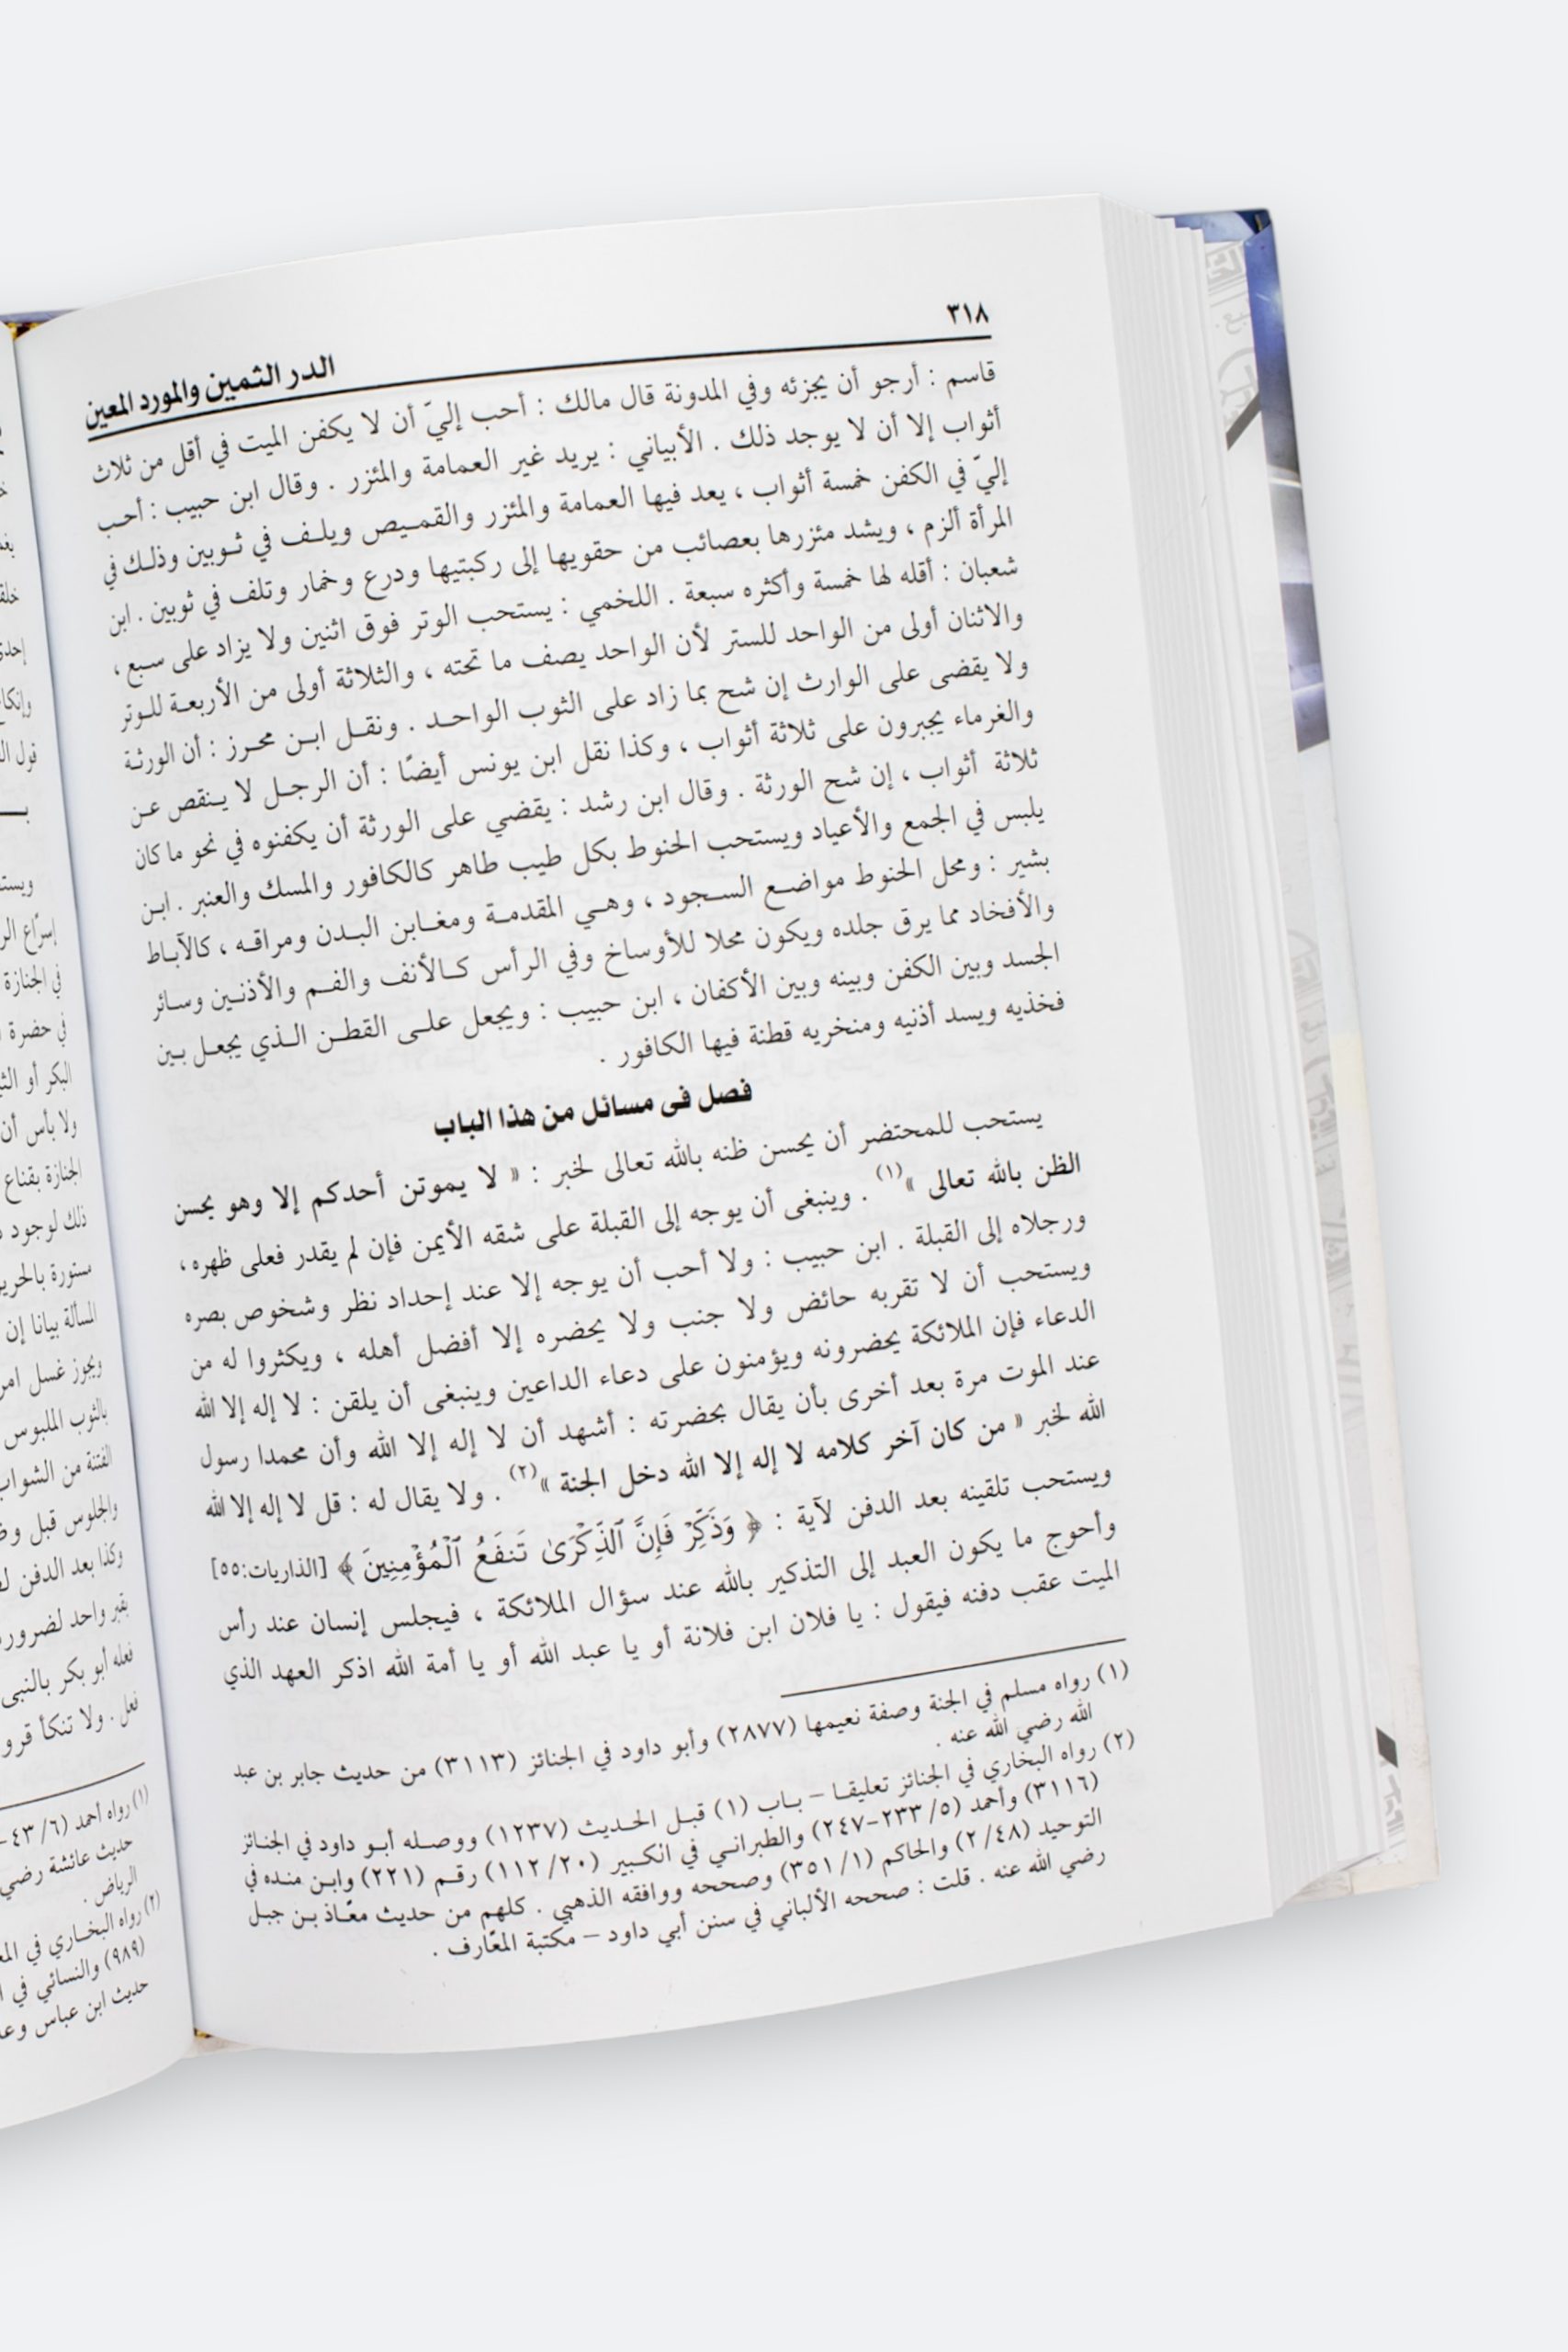 ٣١٨
الدر الثمين والمورد المعين
قاسم : أرجو أن يجزئه وفي المدونة قال مالك : أحب إليّ أن لا يكفن الميت في أقل من ثلاث
أثواب إلا أن لا يوجد ذلك . الأبياني : يريد غير العمامة والمئزر . وقال ابن حبيب : أحب
إليّ في الكفن خمسة أثواب ، يعد فيها العمامة والمئزر والقميص ويلف في ثوبين وذلك في
المرأة ألزم ، ويشد مئزرها بعصائب من حقويها إلى ركبتيها ودرع وخمار وتلف في ثوبين . ابن
شعبان : أقله لها خمسة وأكثره سبعة . اللخمي : يستحب الوتر فوق اثنين ولا يزاد على سبع ،
والاثنان أولى من الواحد للستر لأن الواحد يصف ما تحته ، والثلاثة أولى من الأربعة للوتر
ولا يقضى على الوارث إن شح بما زاد على الثوب الواحد . ونقل ابن محرز : أن الورثة
والغرماء يجبرون على ثلاثة أثواب ، وكذا نقل ابن يونس أيضًا : أن الرجل لا ينقص عن
ثلاثة أثواب ، إن شح الورثة . وقال ابن رشد : يقضي على الورثة أن يكفنوه في نحو ما كان
يلبس في الجمع والأعياد ويستحب الحنوط بكل طيب طاهر كالكافور والمسك والعنبر . ابن
بشير : ومحل الحنوط مواضع السجود ، وهي المقدمة ومغابن البدن ومراقه ، كالآباط
والأفخاد مما يرق جلده ويكون محلا للأوساخ وفي الرأس كالأنف والفم والأذنين وسائر
الجسد وبين الكفن وبينه وبين الأكفان ، ابن حبيب : ويجعل على القطن الذي يجعل بين
فخذيه ويسد أذنيه ومنخريه قطنة فيها الكافور .
فصل فى مسائل من هذا الباب
يستحب للمحتضر أن يحسن ظنه بالله تعالى لخبر : « لا يموتن أحدكم إلا وهو يحسن
الظن بالله تعالى »(١) . وينبغى أن يوجه إلى القبلة على شقه الأيمن فإن لم يقدر فعلى ظهره ،
ورجلاه إلى القبلة . ابن حبيب : ولا أحب أن يوجه إلا عند إحداد نظر وشخوص بصره
ويستحب أن لا تقربه حائض ولا جنب ولا يحضره إلا أفضل أهله ، ويكثروا له من
الدعاء فإن الملائكة يحضرونه ويؤمنون على دعاء الداعين وينبغى أن يلقن : لا إله إلا الله
عند الموت مرة بعد أخرى بأن يقال بحضرته : أشهد أن لا إله إلا الله وأن محمدا رسول
الله لخبر « من كان آخر كلامه لا إله إلا الله دخل الجنة »(٢) . ولا يقال له : قل لا إله إلا الله
ويستحب تلقينه بعد الدفن لآية : ﴿ وَذَكِّرْ فَإِنَّ ٱلذِّكْرَىٰ تَنفَعُ ٱلْمُؤْمِنِينَ ﴾ [الذاريات:٥٥]
وأحوج ما يكون العبد إلى التذكير بالله عند سؤال الملائكة ، فيجلس إنسان عند رأس
الميت عقب دفنه فيقول : يا فلان ابن فلانة أو يا عبد الله أو يا أمة الله اذكر العهد الذي
(١) رواه مسلم في الجنة وصفة نعيمها (٢٨٧٧) وأبو داود في الجنائز (٣١١٣) من حديث جابر بن عبد
الله رضي الله عنه .
(٢) رواه البخاري في الجنائز تعليقا – باب (١) قبل الحديث (١٢٣٧) ووصله أبو داود في الجنائز
(٣١١٦) وأحمد (٢٣٣/٥-٢٤٧) والطبراني في الكبير (١١٢/٢٠) رقم (٢٢١) وابن منده في
التوحيد (٢/٤٨) والحاكم (٣٥١/١) وصححه ووافقه الذهبي . كلهم من حديث معّاذ بن جبل
رضي الله عنه . قلت : صححه الألباني في سنن أبي داود – مكتبة المعّارف .
في الجنازة
في حضرة
البكر أو
ولا بأس أن
الجنازة بقناع
ذلك لوجود
مستورة
المسألة بيانا إن
ويجوز غسل
بالثوب الملبوس
الفتنة من
والجلوس قبل
وكذا بعد الدفن
بقبر واحد
فعله أبو بكر
فعل . ولا تنكأ
(١) رواه أحمد (٤٣/٦-
حديث عائشة رضي
الرياض .
(٢) رواه البخاري في
(٩٨٩) والنسائي في
حديث ابن عباس